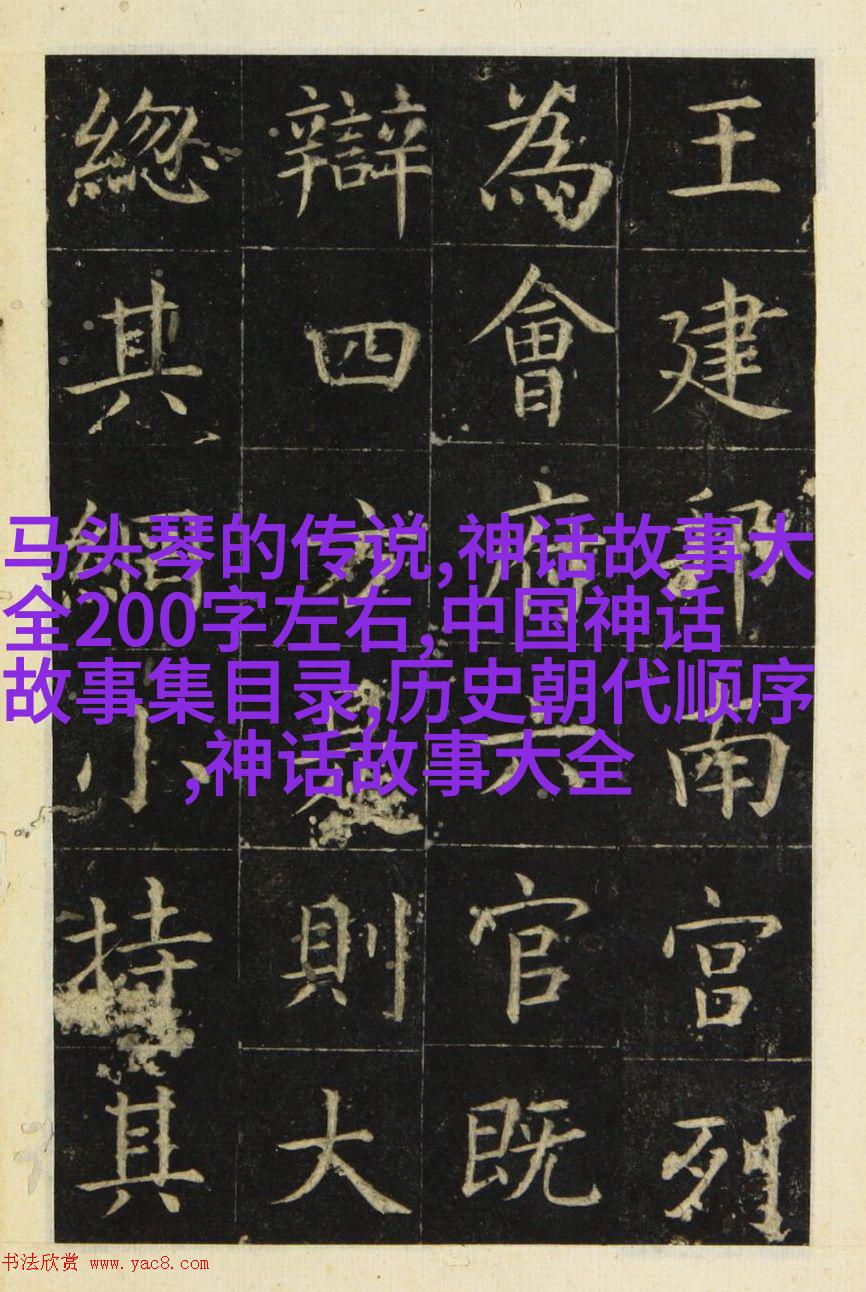 王建南宮列
為會府六官既
辯四方則大
緫其綱小持其
马头琴的传说,神话故事大
全200字左右,中国神话
故事集目录,历史朝代顺序
,神话故事大全
书法欣赏 www.yac8.com